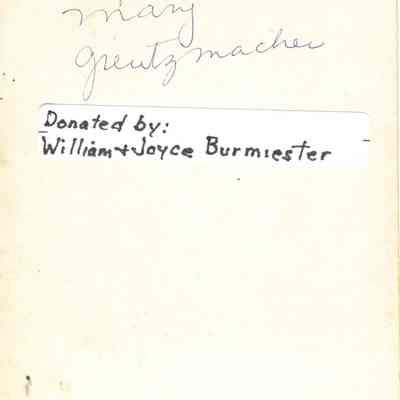 Mary
Greutzmacher
Donated by:
William + Joyce Burmiester